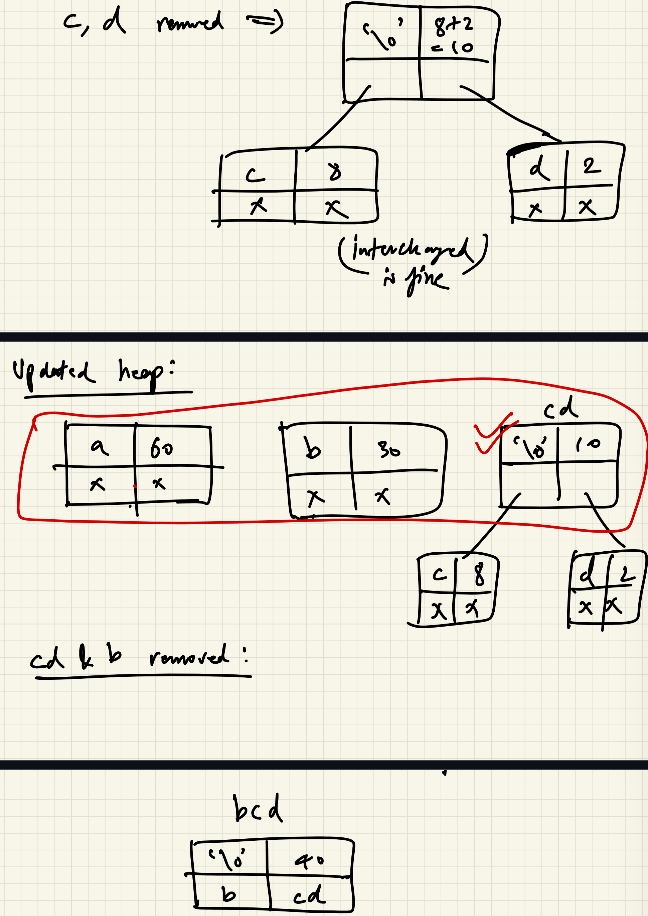 c, d removed ⇒
'\0' 8+2
= 10
c 8
x x
d 2
x x
(interchanged
is fine)
Updated heap:
a 60
x x
b 30
x x
cd
'\0' 10
c 8
x x
d 2
x x
cd & b removed:
bcd
'\0' 40
b cd